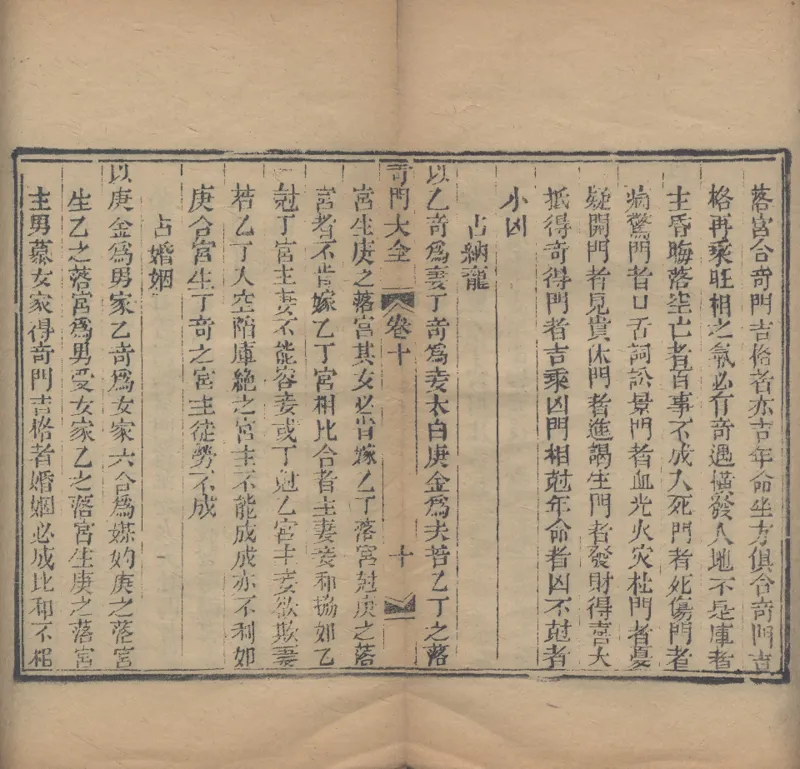 落宮合奇門吉格者亦吉年命坐方俱合奇門吉
格再乘旺相之氣必有奇遇橫發人地不是庫者
主昏晦落空亡者百事不成人死門者死傷門者
病驚門者口舌詞訟景門者血光火灾杜門者憂
疑開門者見貴休門者進謁生門者發財得喜大
抵得奇得門者吉乘凶門相尅年命者凶不尅者
小凶
占納寵
以乙奇爲妻丁奇爲妾太白庚金爲夫若乙丁之落
奇門大全 卷十 十
宮生庚之落宮其女必肯嫁乙丁落宮尅庚之落
宮者不肯嫁乙丁宮相比合者主妻妾和協如乙
尅丁宮主妻不能容妾或丁尅乙宮主妾欲欺妻
若乙丁入空陷庫絶之宮主不能成成亦不利如
庚合宮生丁奇之宮主徒勞不成
占婚姻
以庚金爲男家乙奇爲女家六合爲媒妁庚之落宮
生乙之落宮爲男愛女家乙之落宮生庚之落宮
主男慕女家得奇門吉格者婚姻必成比和不相